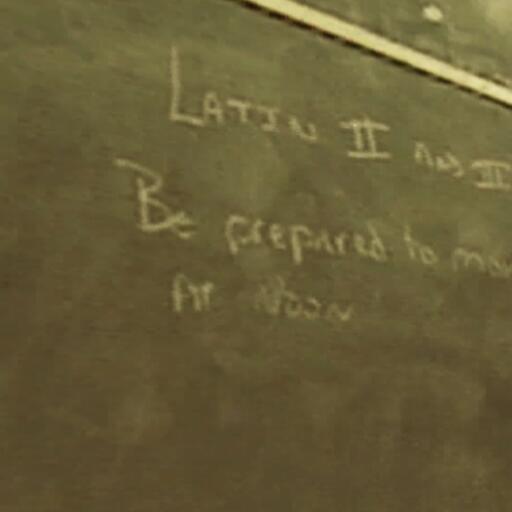 LATIN II AND II
Be prepared to mo
AT NOON